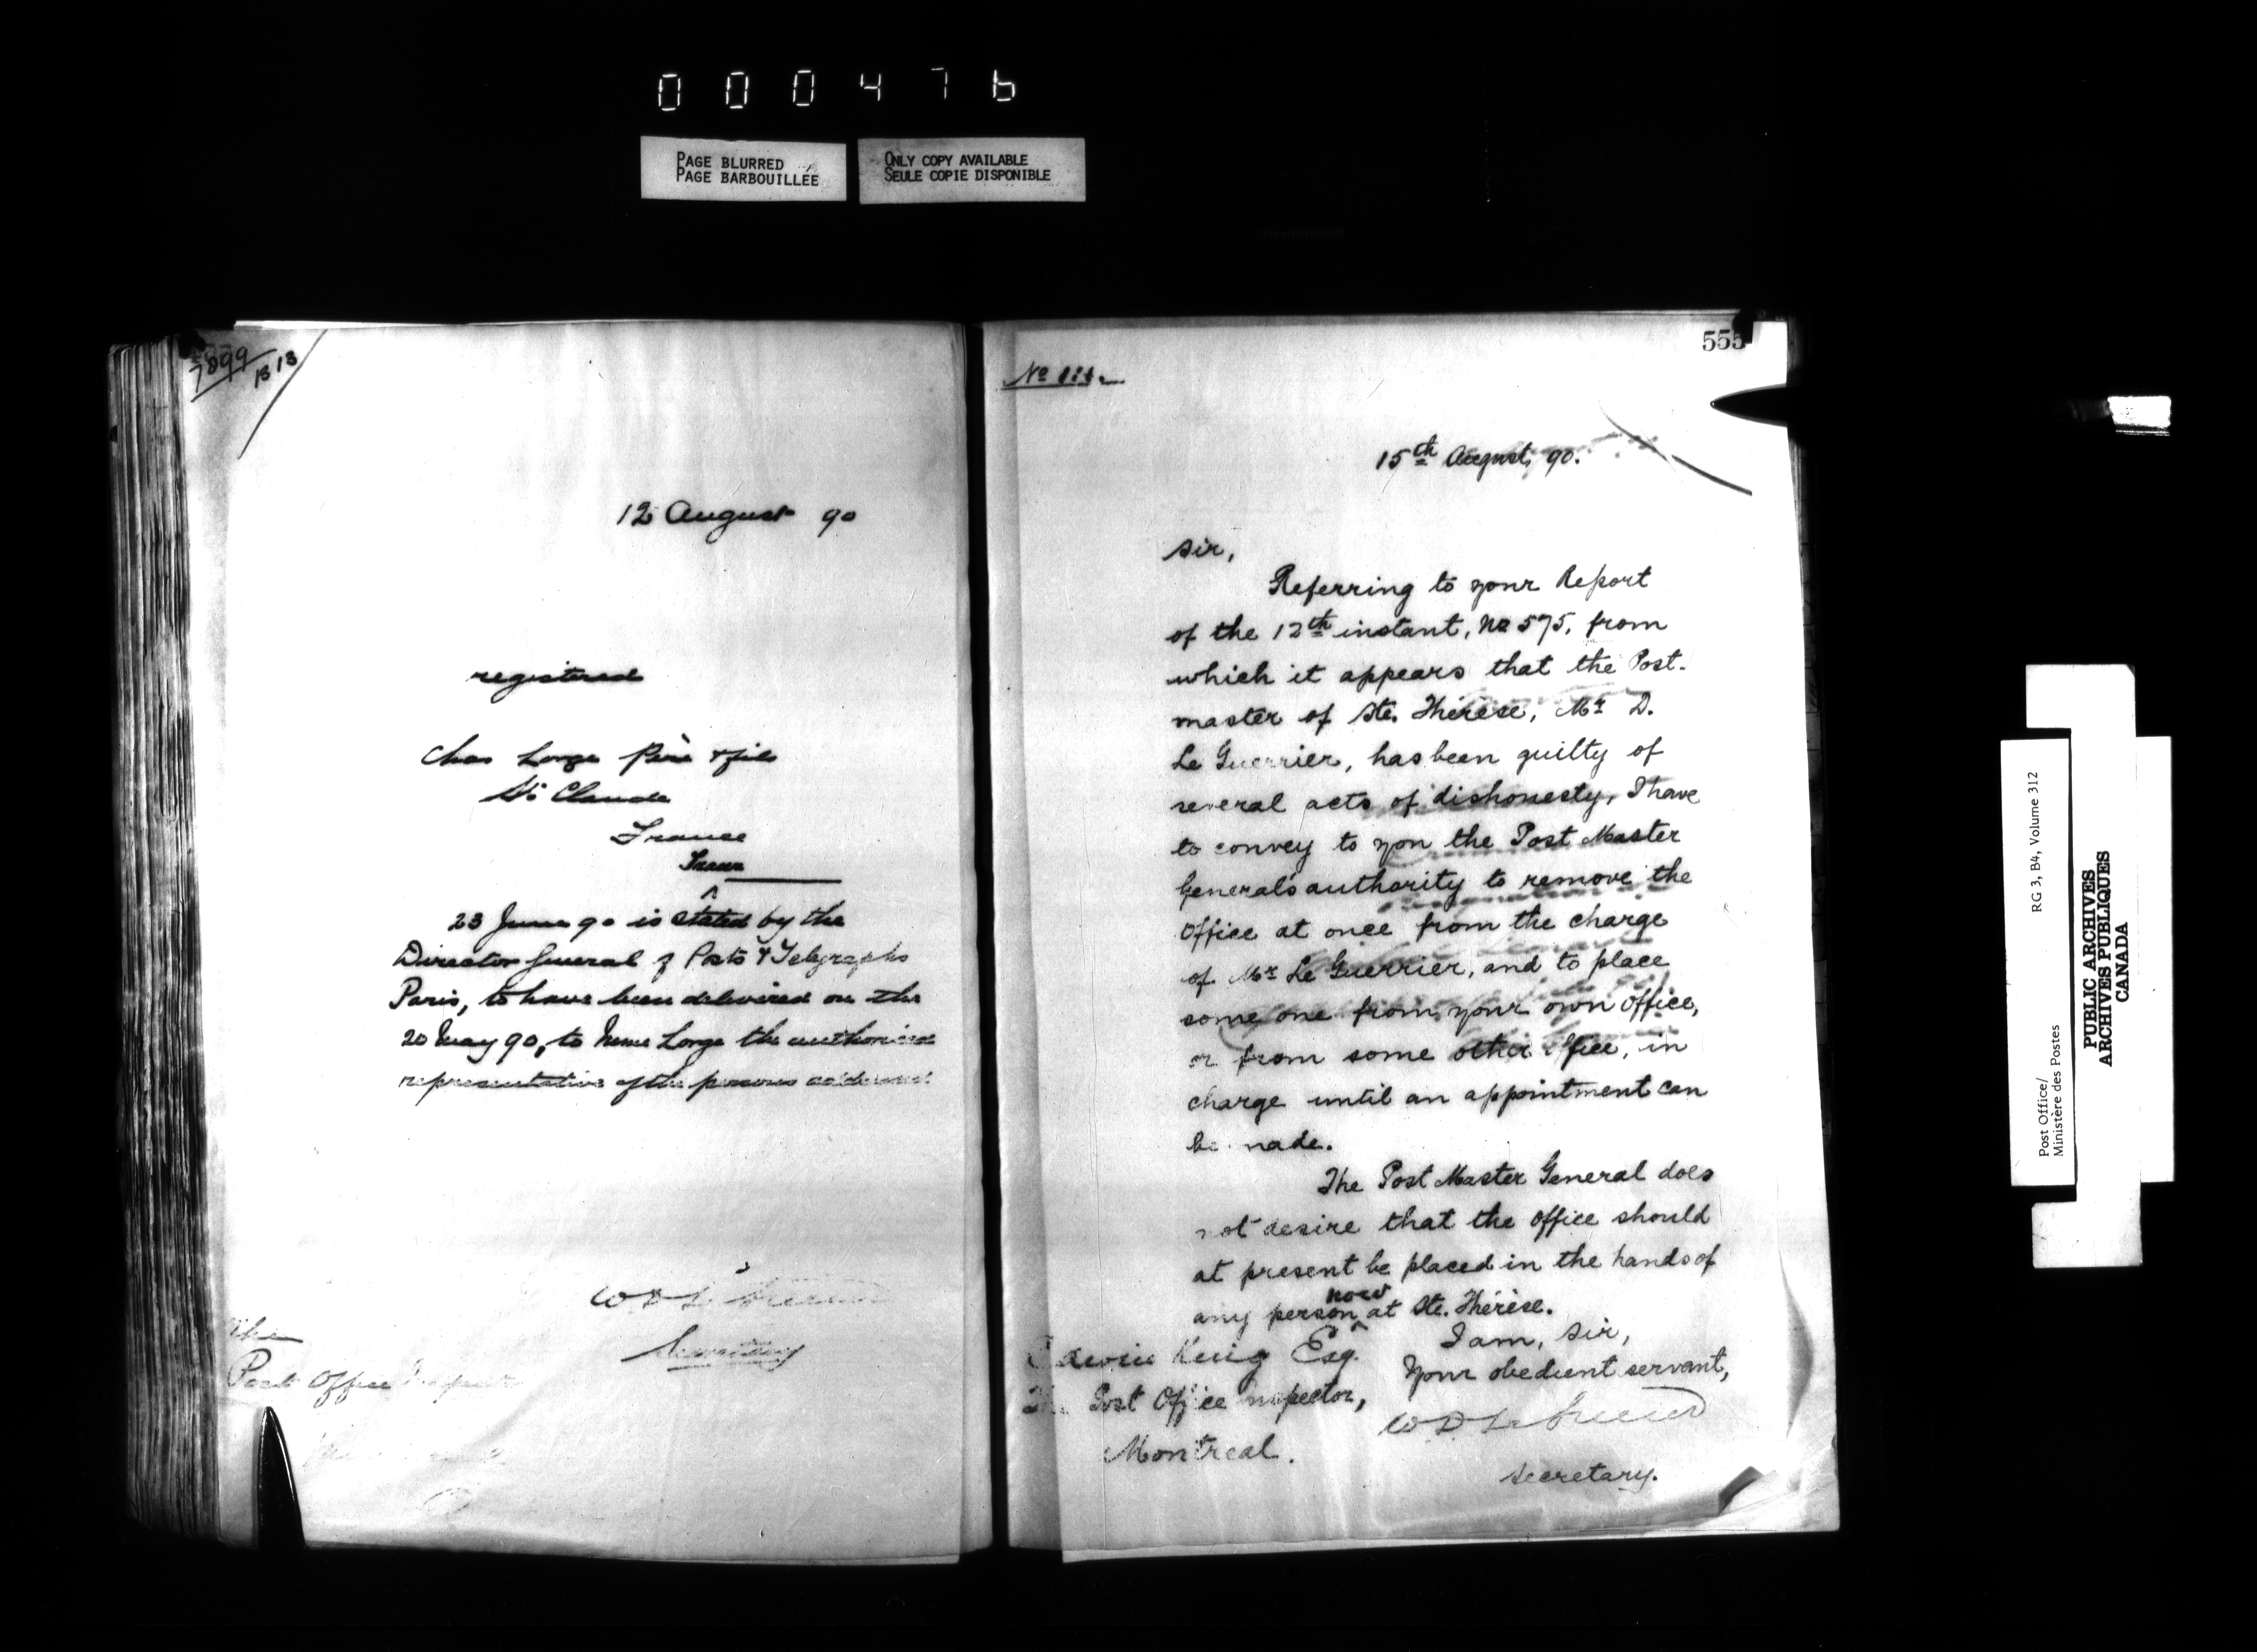 000476
PAGE BLURRED
PAGE BARBOUILLÉE
ONLY COPY AVAILABLE
SEULE COPIE DISPONIBLE
7899
B 13
12 August 90
registered
Chas Lorge Père & fils
St Claude
France
23 June 90 is stated by the
Director General of Posts & Telegraphs
Paris, to have been delivered on the
20 May 90, to Mme Lorge the authorised
representative of the persons addressed
Secretary
The
Post Office Inspector
555
No
15th August, 90.
Sir,
Referring to your Report
of the 12th instant, No 575, from
which it appears that the Post-
master of Ste. Thérèse, Mr D.
Le Guerrier, has been guilty of
several acts of dishonesty, I have
to convey to you the Post Master
General's authority to remove the
Office at once from the charge
of Mr Le Guerrier, and to place
some one from your own Office,
or from some other Office, in
charge until an appointment can
be made.
The Post Master General does
not desire that the Office should
at present be placed in the hands of
any person now at Ste. Thérèse.
I am, Sir,
Your obedient servant,
Edwin King Esq.
The Post Office Inspector,
Montreal.
Secretary.
Post Office/
Ministère des Postes
RG 3, B4, Volume 312
PUBLIC ARCHIVES
ARCHIVES PUBLIQUES
CANADA